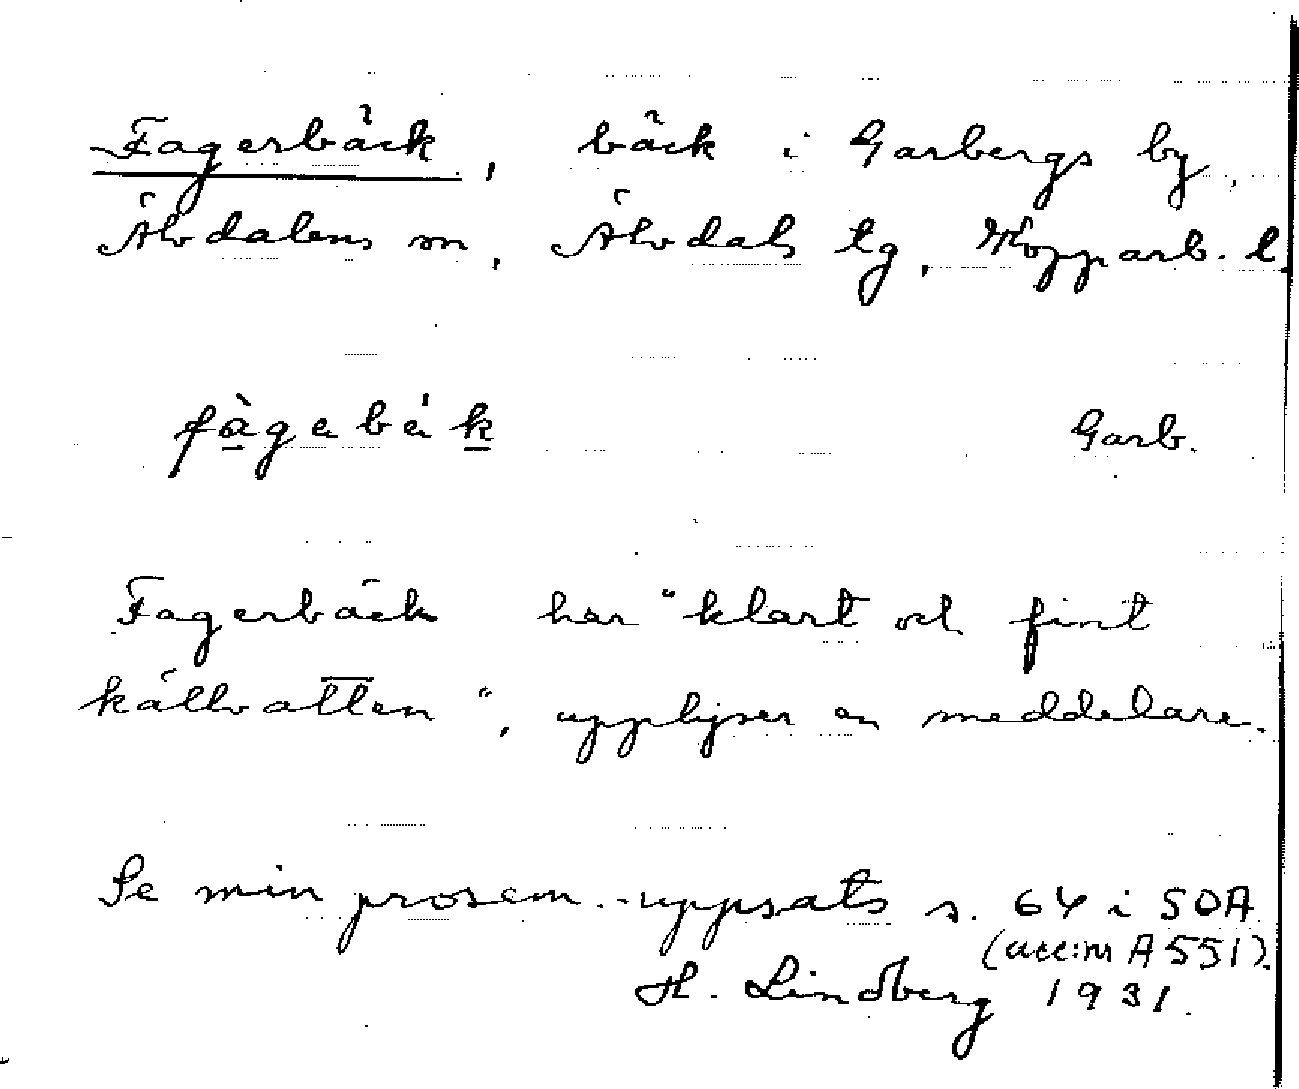 Fagerbäck, bäck i Garbergs by,
Älvdalens sn, Älvdals tg, Kopparb. l.
fàgebák Garb.
Fagerbäck har "klart och fint
källvatten", upplyser en meddelare.
Se min prosem.-uppsats s. 64 i SOA
(acc:nr A 551).
H. Lindberg 1931.